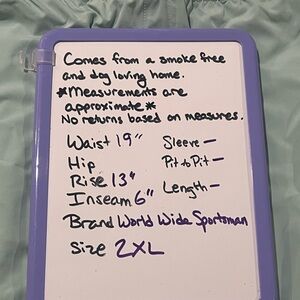 Comes from a smoke free
and dog loving home.
*Measurements are
approximate*
No returns based on measures.
Waist 19"
Hip
Rise 13"
Inseam 6"
Sleeve -
Pit to Pit -
Length -
Brand World Wide Sportsman
Size 2XL